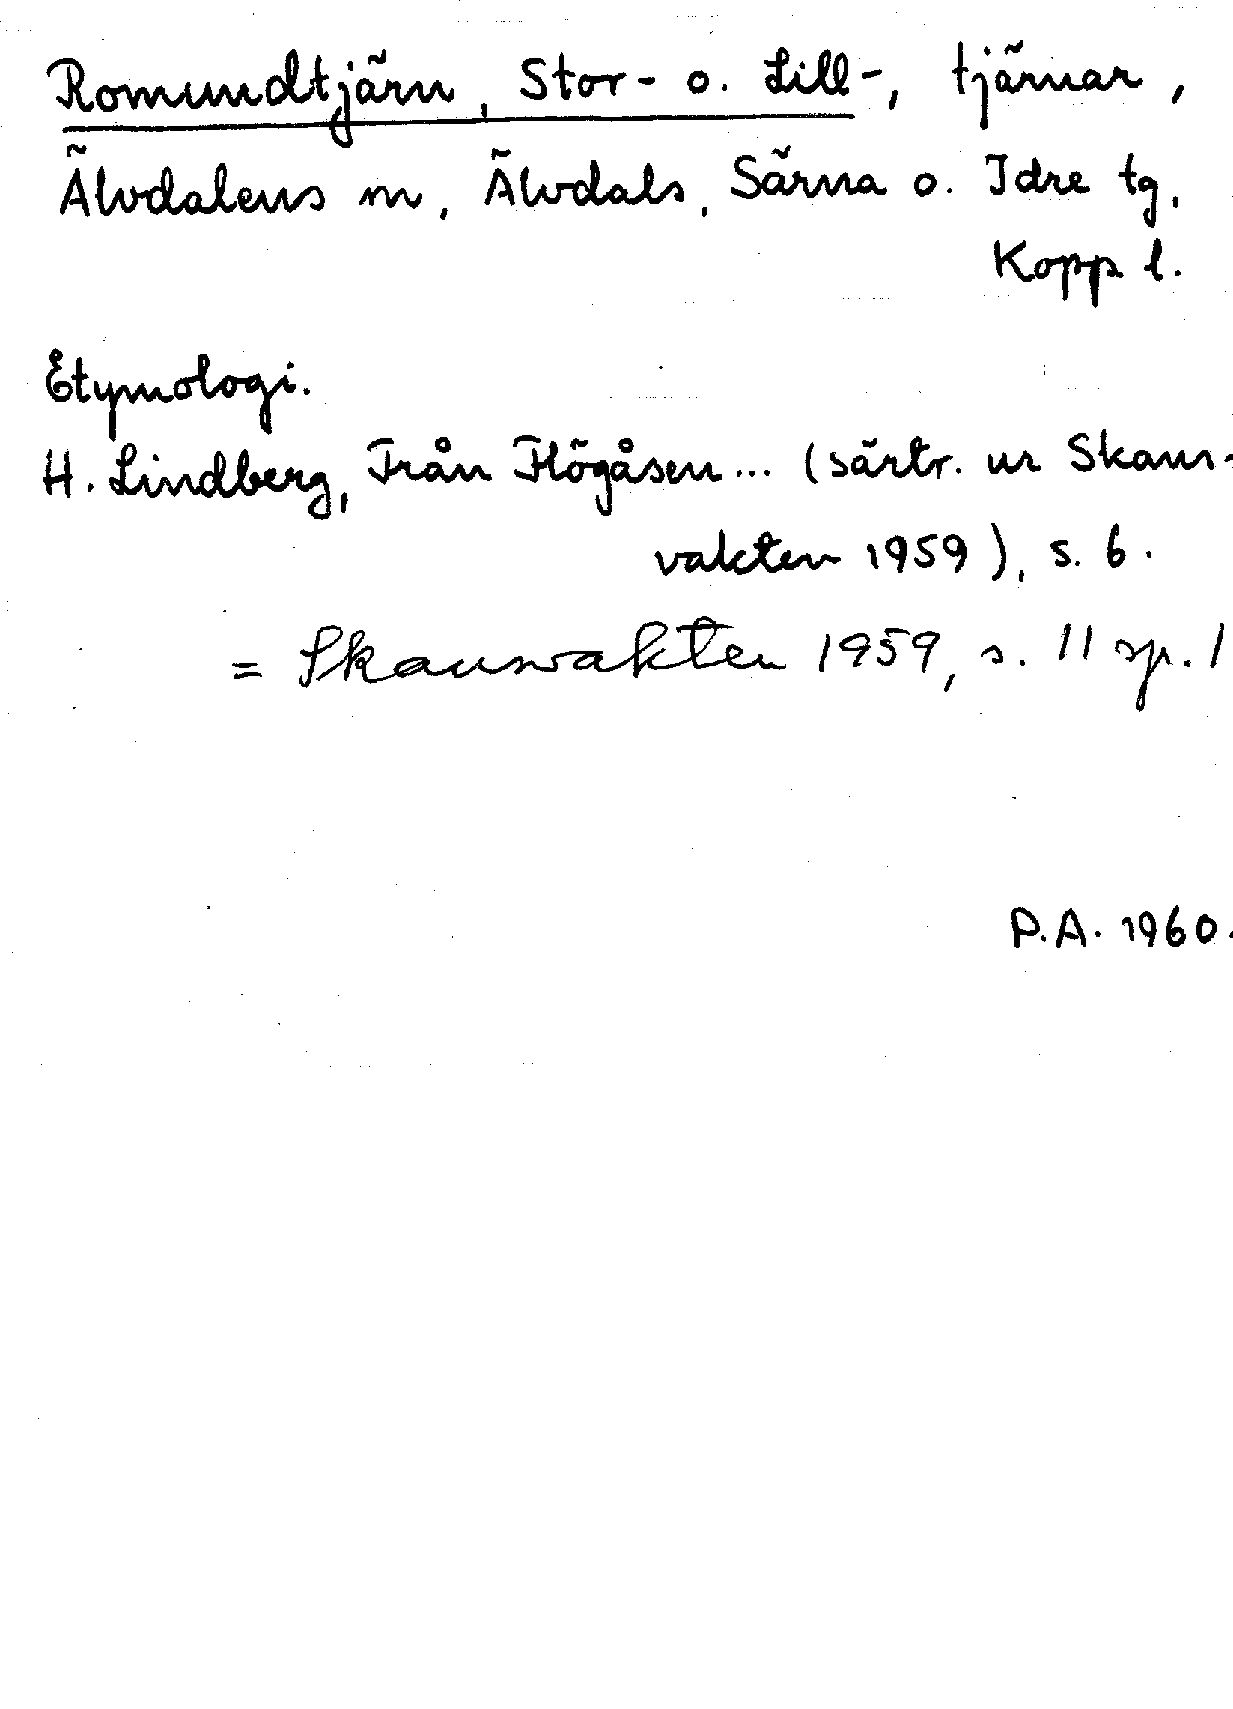 Romundtjärn, Stor- o. Lill-, tjärnar,
Älvdalens m, Älvdals, Särna o. Idre tg,
Kopp l.
Etymologi.
H. Lindberg, Från Högåsen... (särtr. ur Skans-
vakten 1959), s. 6.
= Skansvakten 1959, s. 11 sp. 1
P.A. 1960.